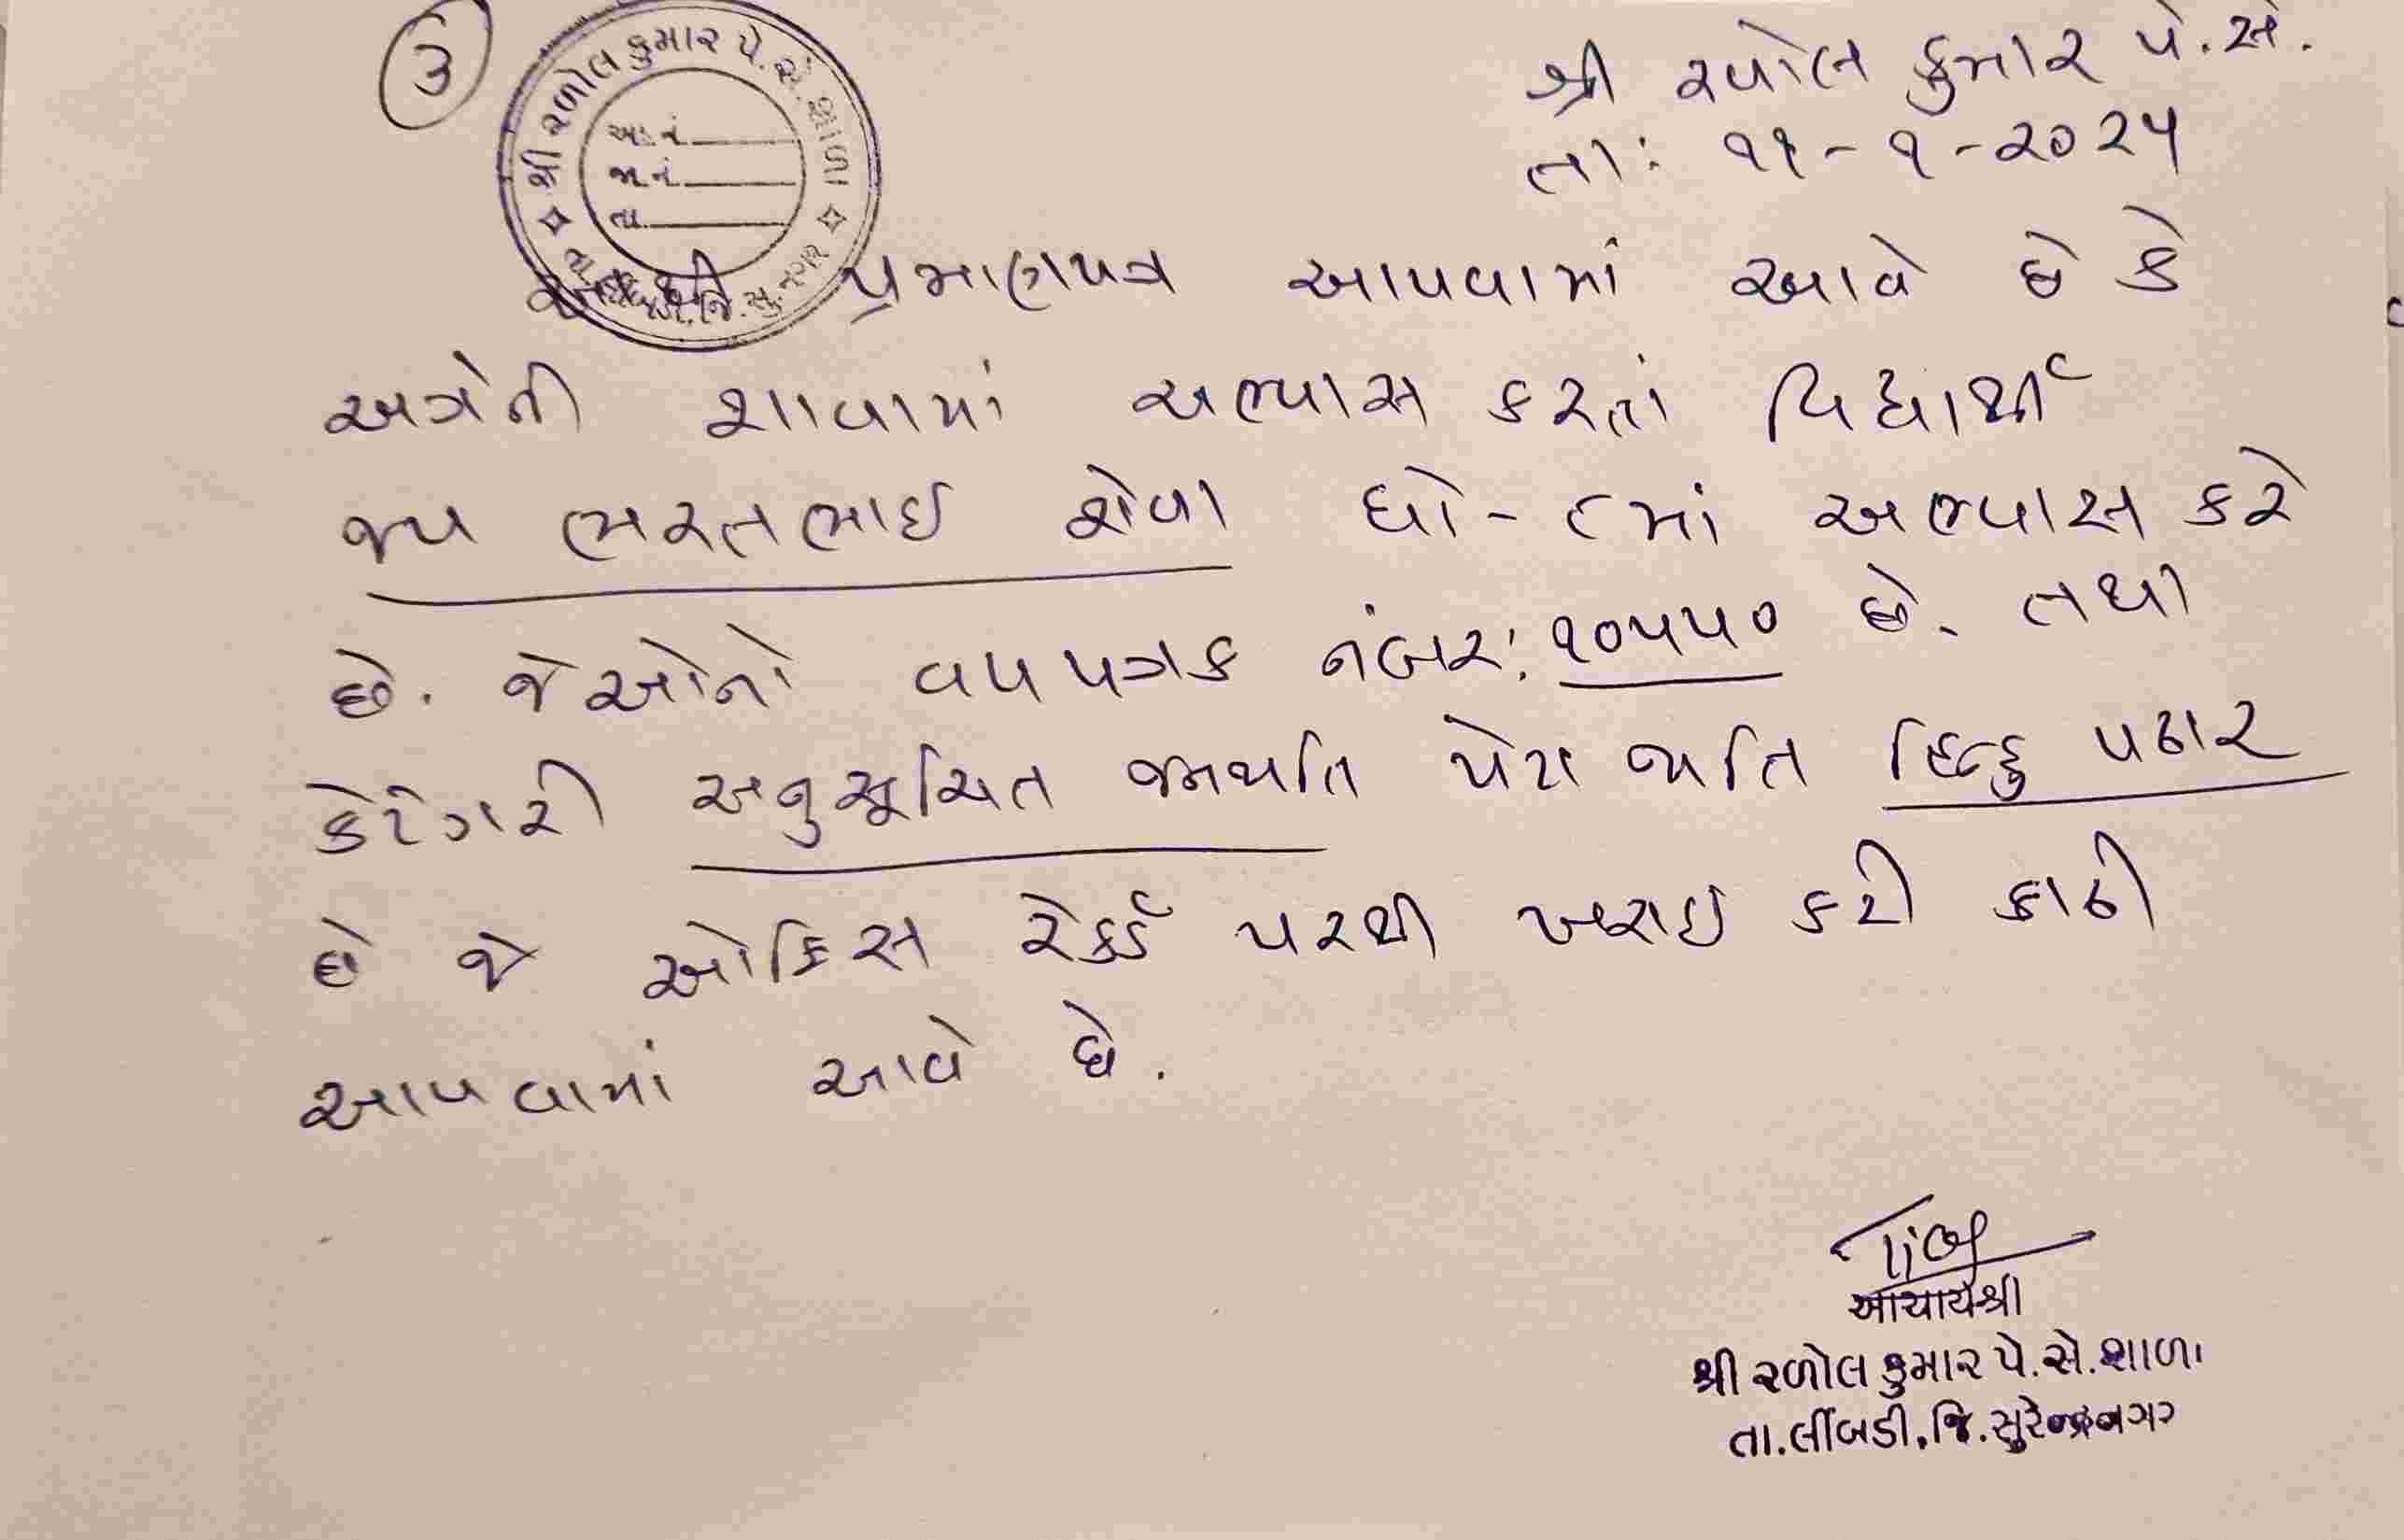 ૩
શ્રી રળોલ કુમાર પે. સે. શાળા
આ.નં.
જા.નં.
તા.
શ્રી રળોલ કુમાર પે.સે.
તા: ૧૧-૧-૨૦૨૫
પ્રમાણપત્ર આપવામાં આવે છે કે
અત્રેની શાળામાં અભ્યાસ કરતાં વિદ્યાર્થી
જય ભરતભાઇ ધો-૮માં અભ્યાસ કરે
છે. જેઓનો વયપત્રક નંબર: ૧૦૫૫૦ છે. તથા
કેટેગરી અનુસૂચિત જનજાતિ પેટા જાતિ હિન્દુ પઢાર
છે જે ઓફિસ રેકર્ડ પરથી ખરાઇ કરી કાઢી
આપવામાં આવે છે.
આચાર્યશ્રી
શ્રી રળોલ કુમાર પે.સે.શાળા
તા.લીંબડી, જિ.સુરેન્દ્રનગર